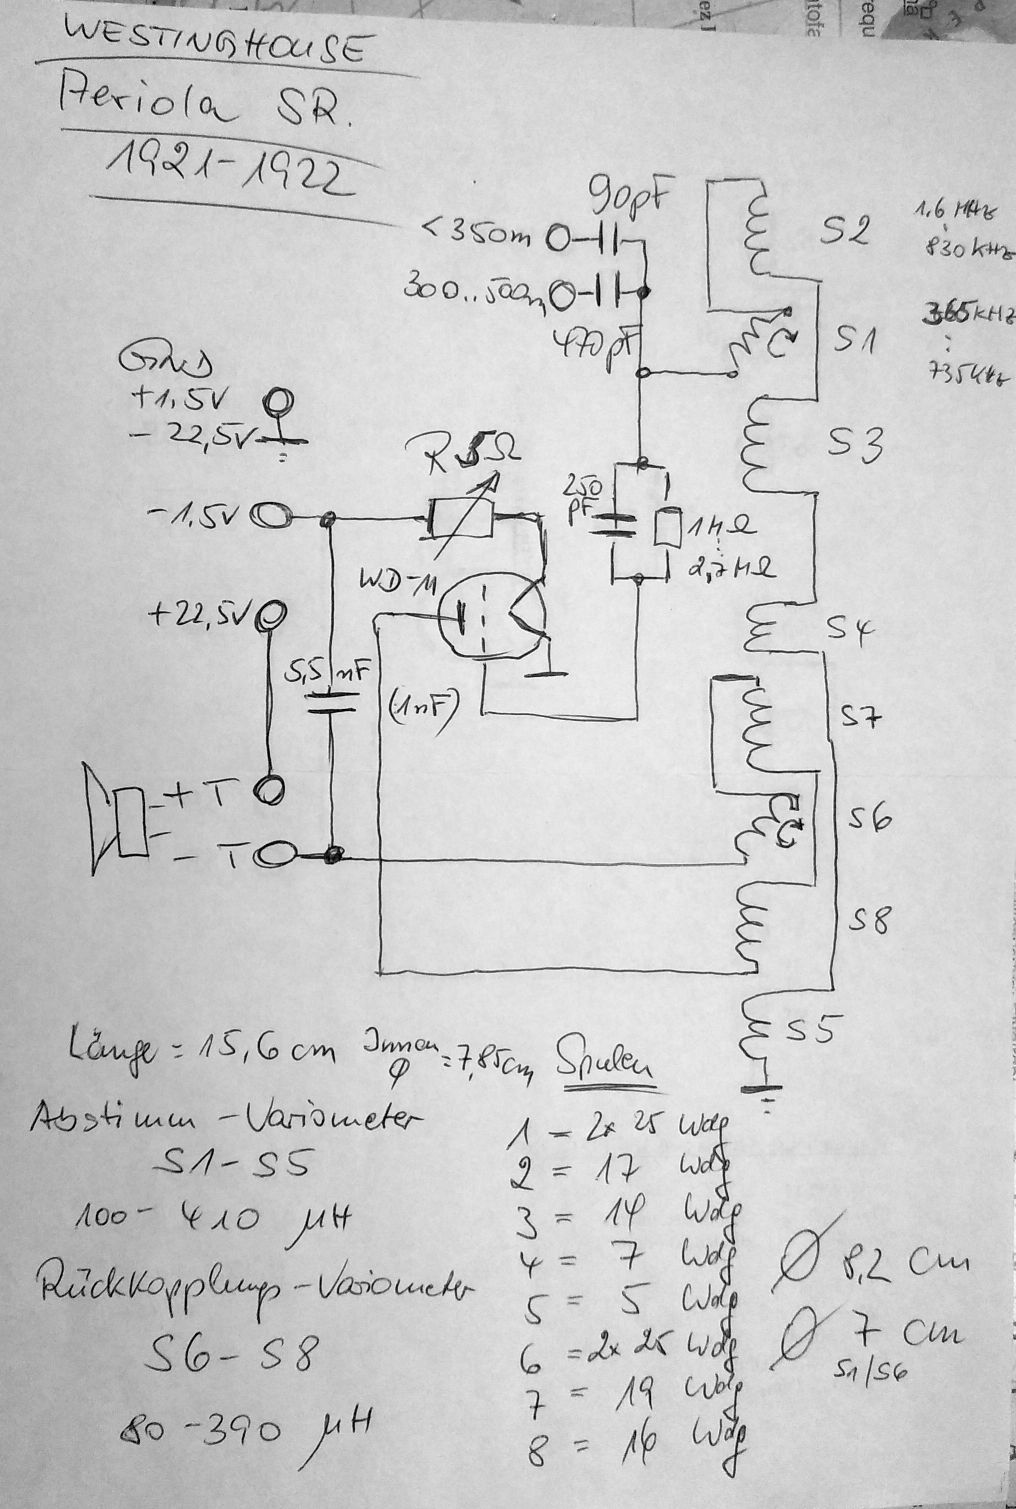 WESTINGHOUSE
Aeriola SR.
1921-1922
90pF
<350m
300..500m
470pF
S2
1,6 MHz
:
830 KHz
S1
365 KHz
:
735 KHz
S3
GND
+1,5V
- 22,5V
R 5Ω
-1,5V
250
pF
1MΩ
:
2,7 MΩ
WD-11
+22,5V
S4
5,5 nF
(1nF)
S7
+ T
S6
- T
S8
S5
Länge = 15,6 cm Innen ϕ = 7,85cm
Spulen
Abstimm - Variometer
S1-S5
100- 410 µH
Rückkopplungs - Variometer
S6- S8
80 -390 µH
1 = 2x 25 Wdg
2 = 17 Wdg
3 = 14 Wdg
4 = 7 Wdg
5 = 5 Wdg
6 = 2x 25 Wdg
7 = 19 Wdg
8 = 16 Wdg
Ø 8,2 cm
Ø 7 cm
S1/S6